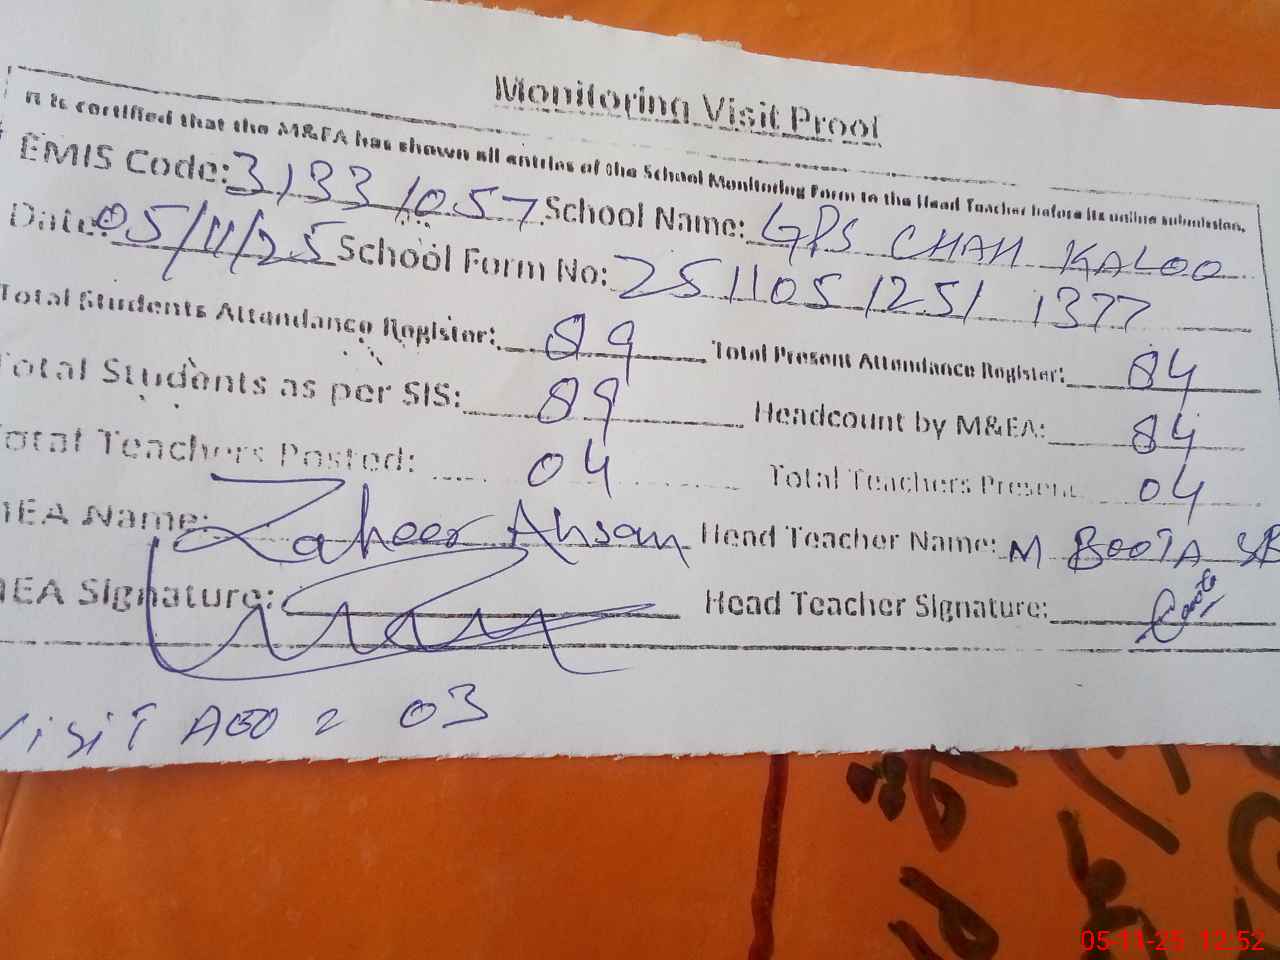 Monitoring Visit Proof
It is certified that the M&EA has shown all entries of the School Monitoring Form to the Head Teacher before its online submission.
EMIS Code: 31331057 School Name: GPS CHAH KALOO
Date: 05/11/25 School Form No: 251105 1251 1377
Total Students Attendance Register: 89 Total Present Attendance Register: 84
Total Students as per SIS: 89 Headcount by M&EA: 84
Total Teachers Posted: 04 Total Teachers Present 04
MEA Name: Zaheer Ahsan Head Teacher Name: M BOOTA
MEA Signature: Head Teacher Signature:
Visit AEO = 03
05-11-25 12:52